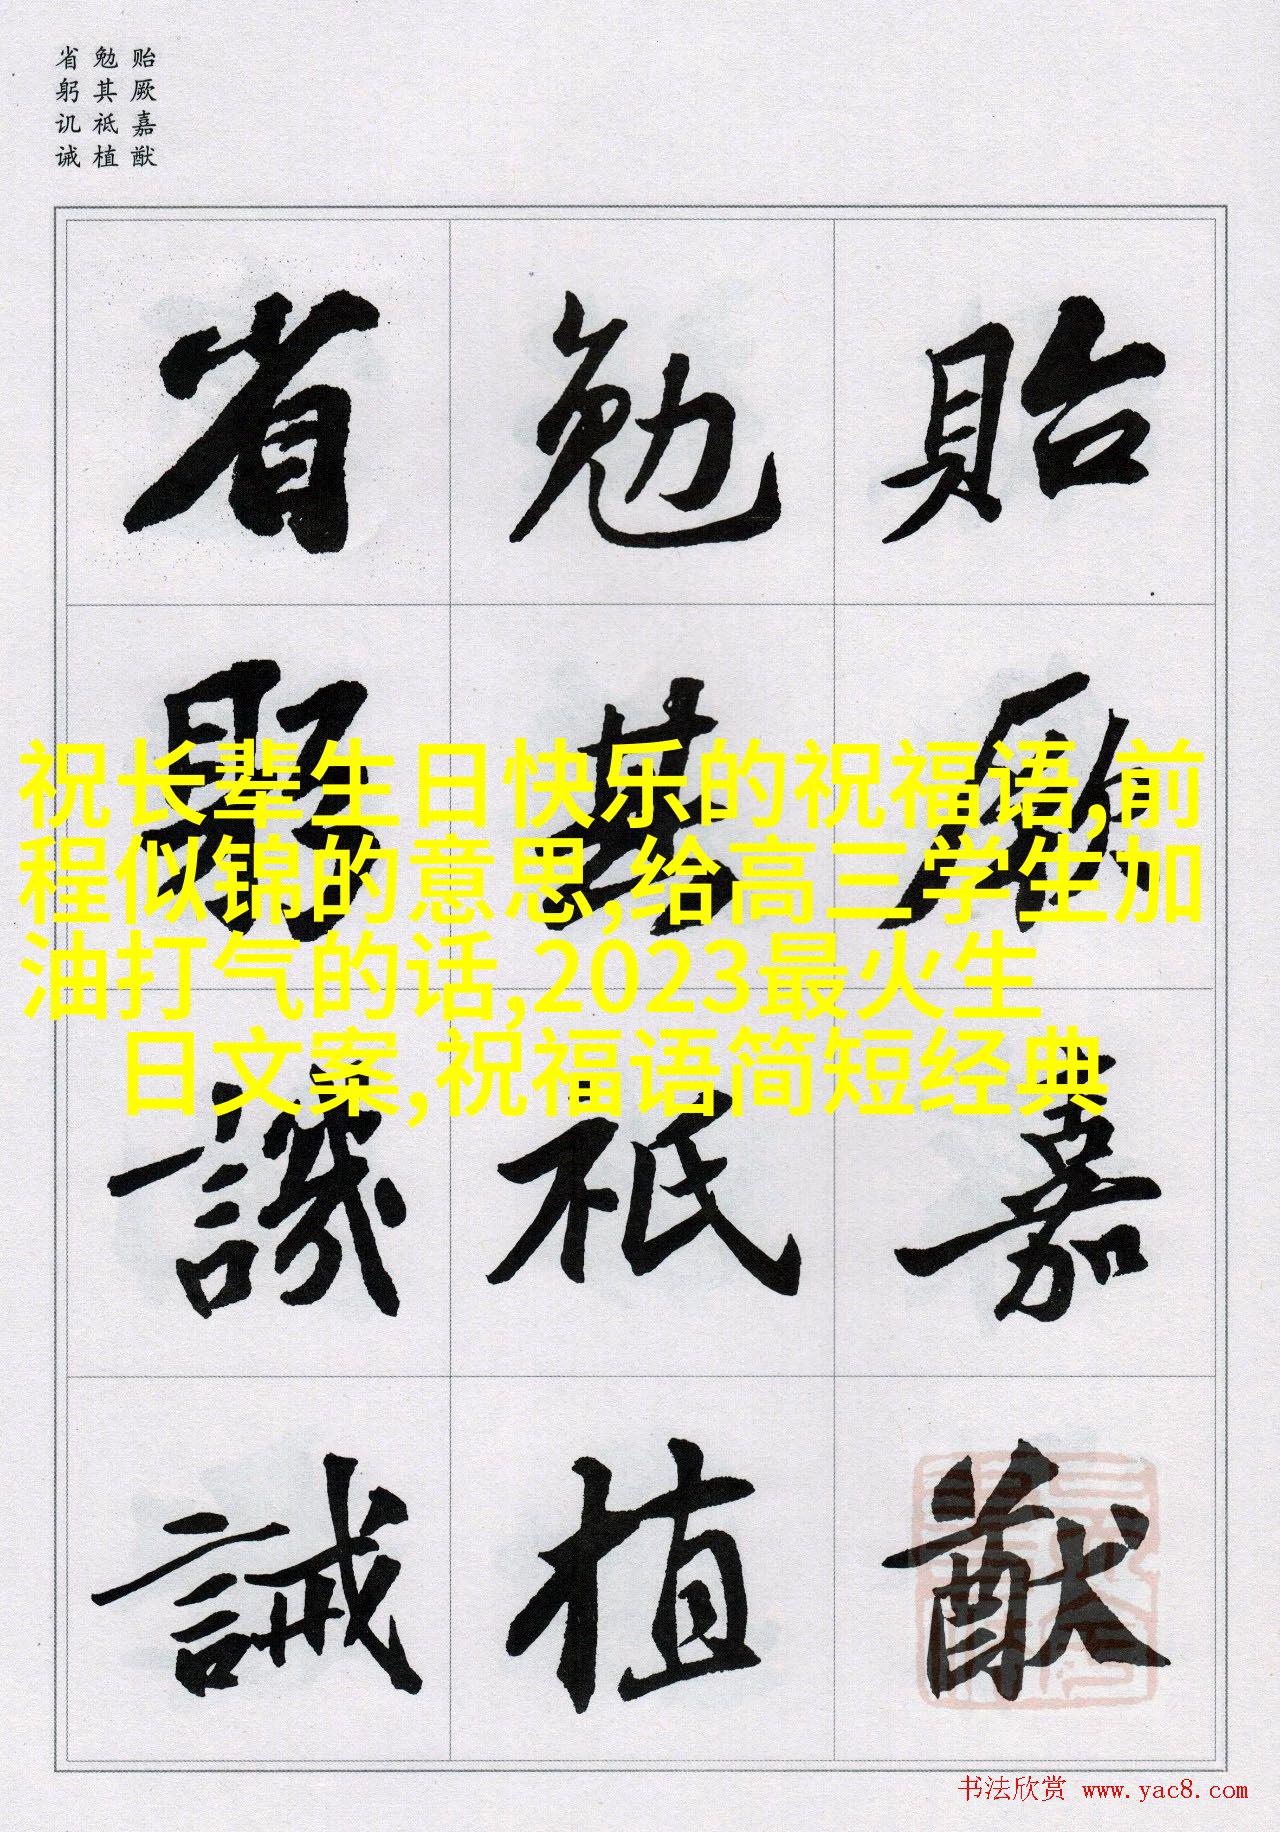 贻厥嘉猷
勉其祗植
省躬讥诫
貽厥嘉猷
勉其祗植
省躬譏誡
祝长辈生日快乐的祝福语,前
程似锦的意思,给高三学生加
油打气的话,2023最火生
日文案,祝福语简短经典
书法欣赏 www.yac8.com